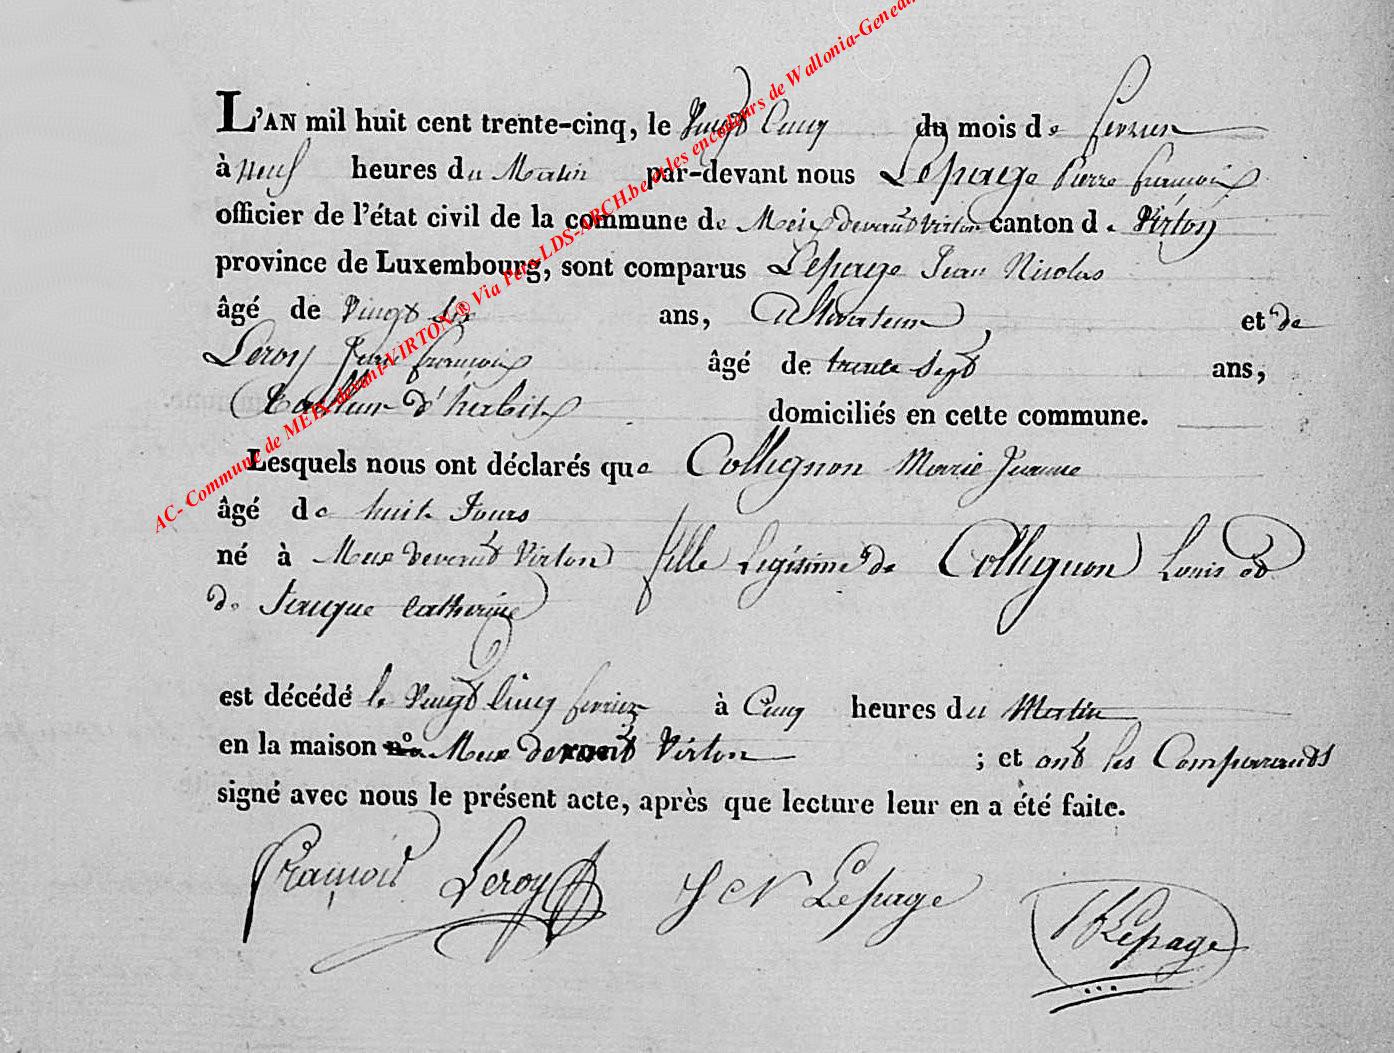 L'AN mil huit cent trente-cinq, le Vingt Cinq du mois de fevrier
à neuf heures du Matin par-devant nous Lepage Pierre françois
officier de l'état civil de la commune de Meix devant Virton canton de Virton
province de Luxembourg, sont comparus Lepage Jean Nicolas
âgé de Vingt six ans, et de
Leroy Jean françois âgé de trente sept ans,
tailleur d'habits domiciliés en cette commune.
Lesquels nous ont déclarés que Collignon Marie Jeanne
âgé de huit Jours
né à Meix devant Virton fille Legitime de Collignon Louis et
de Jacque Catherine
est décédé le Vingt Cinq fevrier à Cinq heures du Matin
en la maison no. Meix devant Virton ; et ont les Comparants
signé avec nous le présent acte, après que lecture leur en a été faite.
François Leroy J N Lepage PF Lepage
AC- Commune de MEIX-devant-VIRTON ® Via Pero-LDS-ARCH.be et les encodeurs de Wallonia-Genea